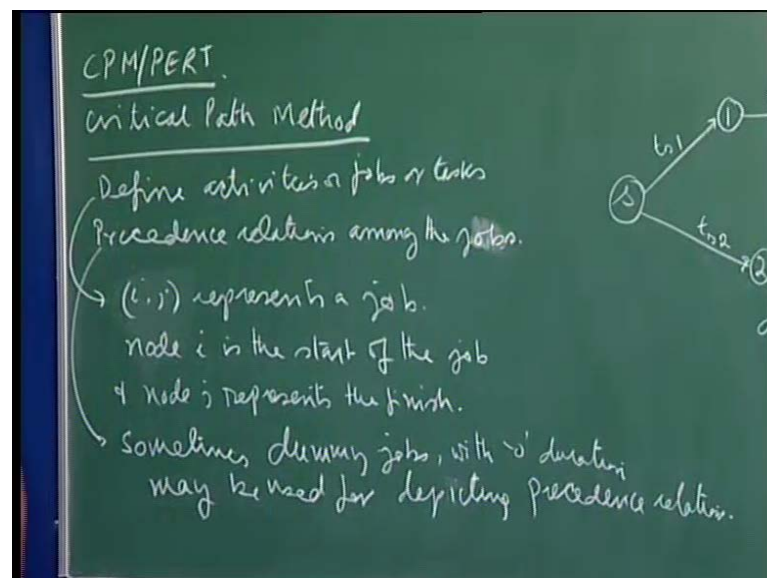 CPM/PERT.
Critical Path Method
Define activities or jobs or tasks
Precedence relations among the jobs.
(i,j) represents a job.
node i is the start of the job
& node j represents the finish.
Sometimes dummy jobs, with '0' duration
may be used for depicting precedence relation.
s
ts1
1
ts2
2